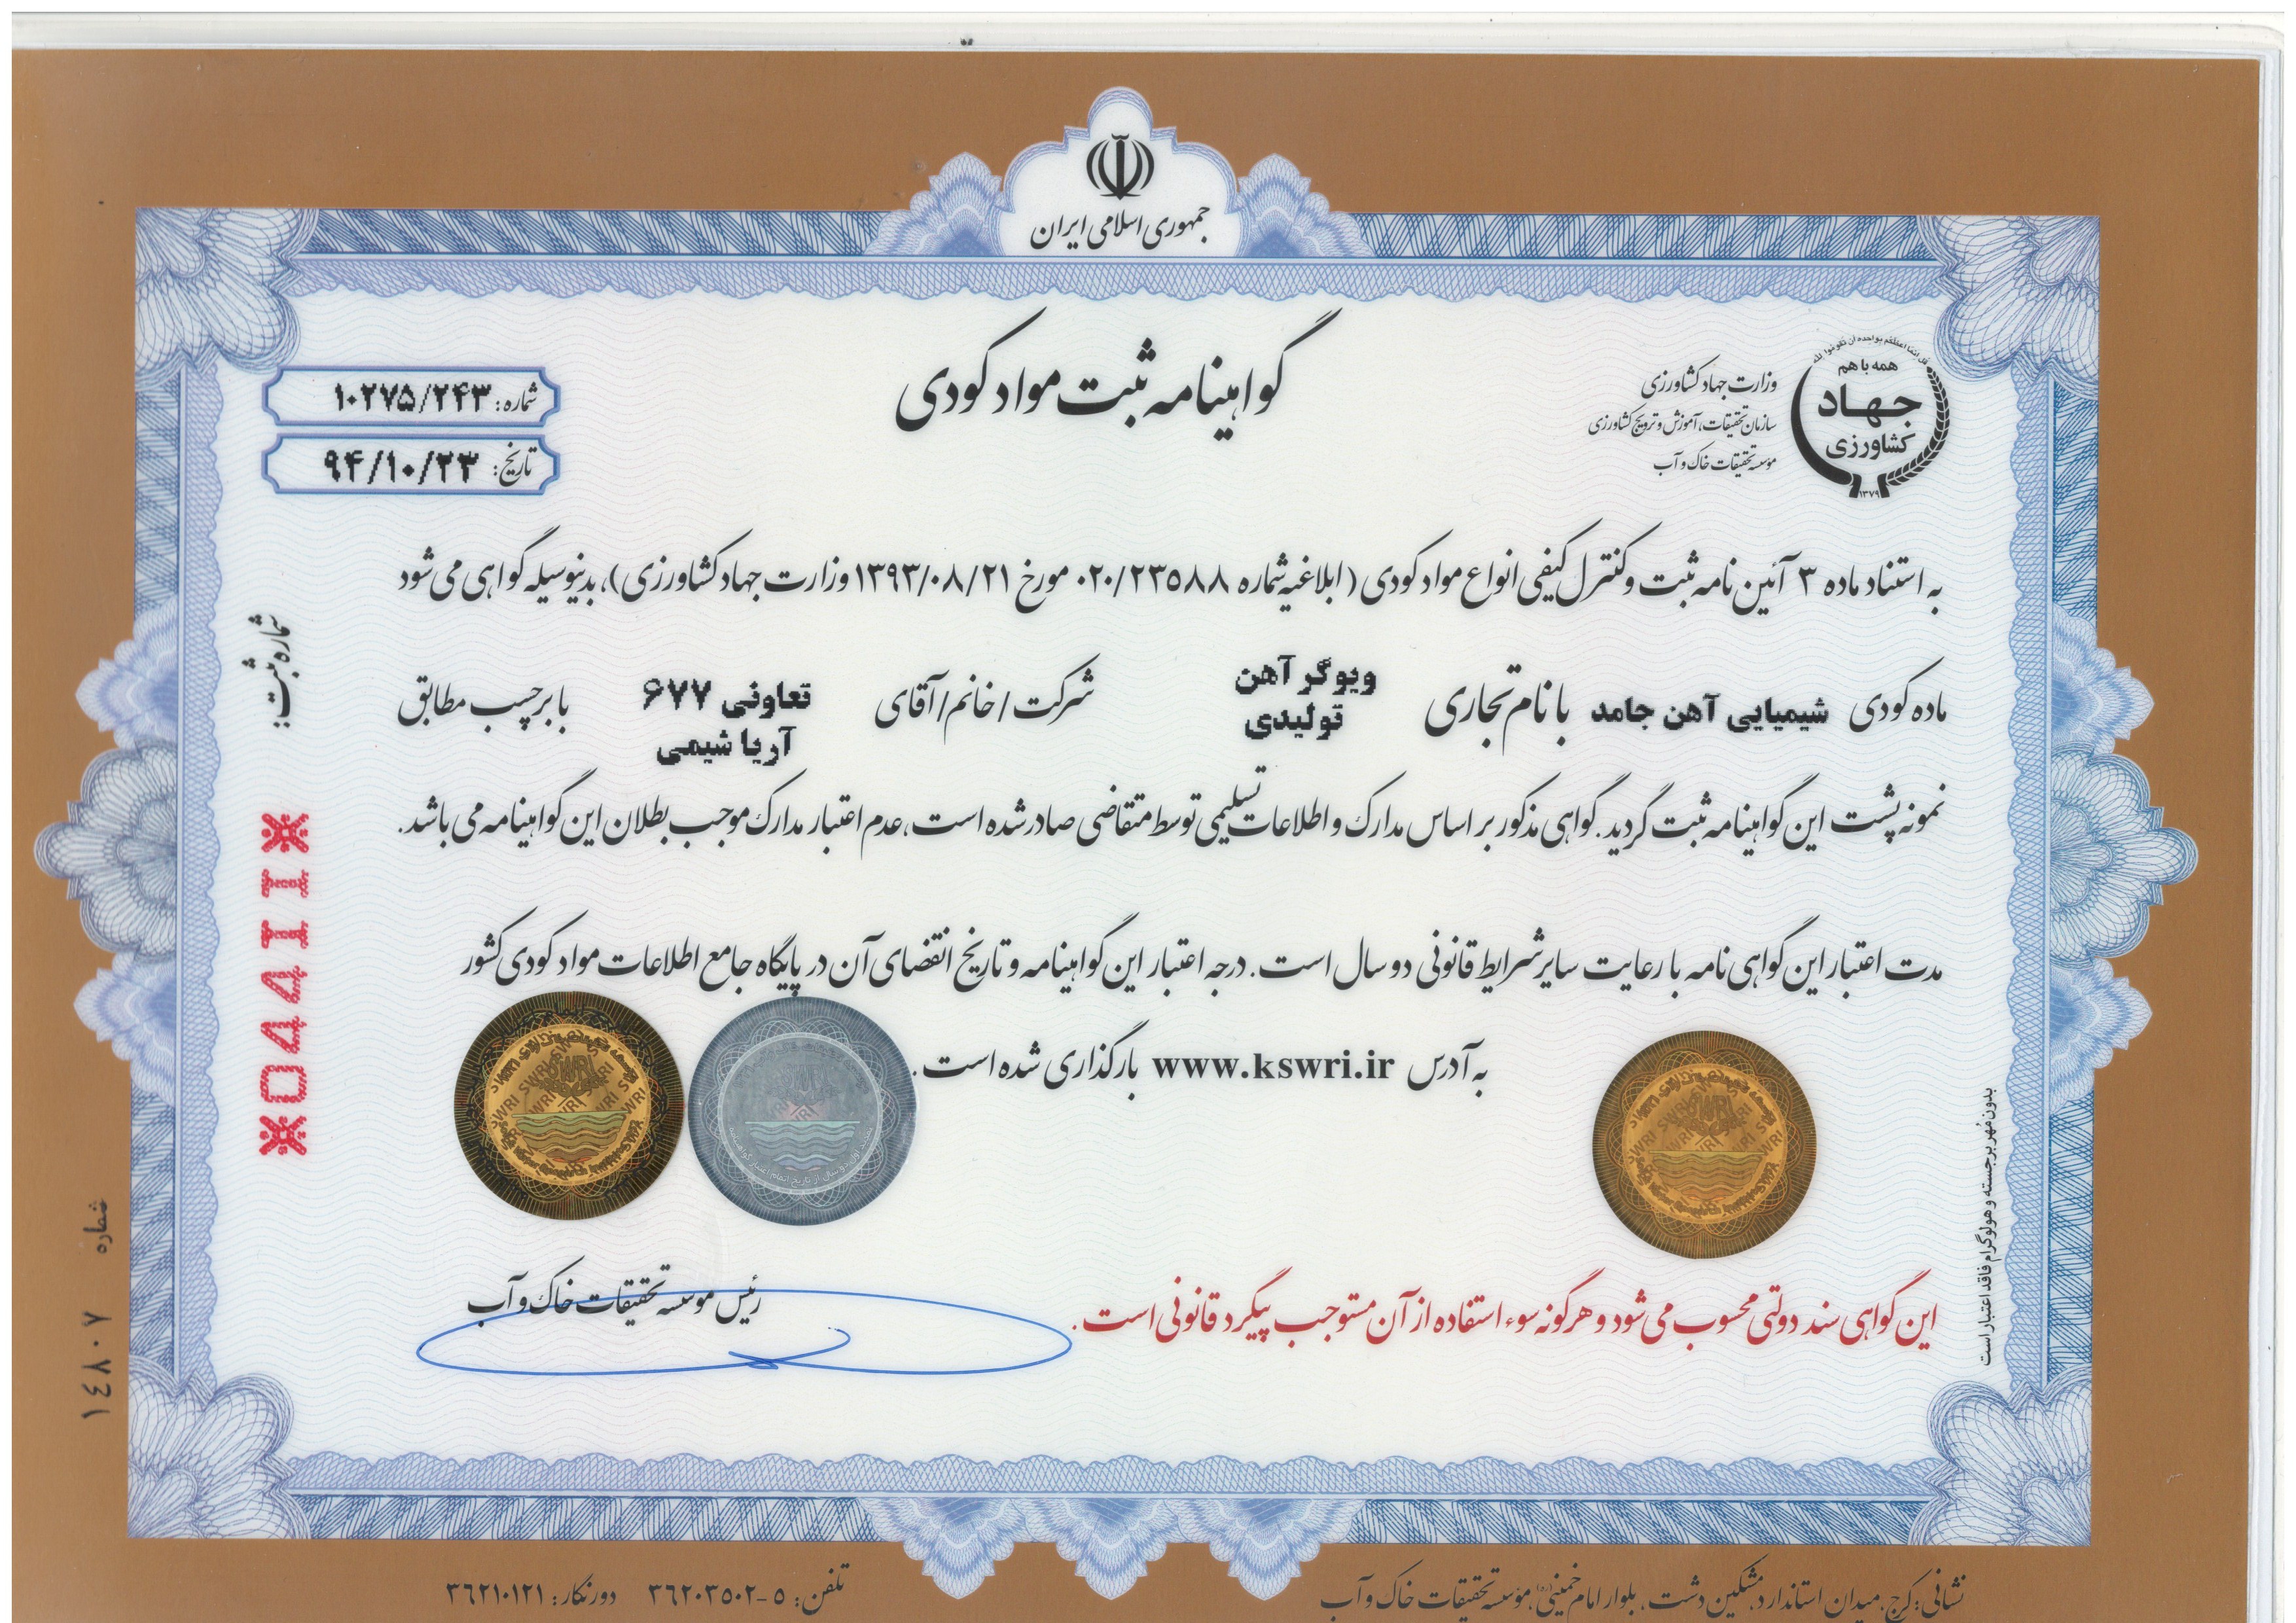 جمهوری اسلامی ایران
همه با هم
جهاد
کشاورزی
۱۳۷۹
وزارت جهاد کشاورزی
سازمان تحقیقات، آموزش و ترویج کشاورزی
موسسه تحقیقات خاک و آب
گواهینامه ثبت مواد کودی
شماره: ۱۰۲۷۵/۲۴۳
تاریخ: ۹۴/۱۰/۲۳
به استناد ماده ۳ آئین نامه ثبت و کنترل کیفی انواع مواد کودی (ابلاغیه شماره ۰۲۰/۲۳۵۸۸ مورخ ۱۳۹۳/۰۸/۲۱ وزارت جهاد کشاورزی)، بدینوسیله گواهی می شود
ماده کودی شیمیایی آهن جامد با نام تجاری ویوگر آهن تولیدی شرکت/خانم/آقای تعاونی ۶۷۷ آریا شیمی با برچسب مطابق
نمونه پشت این گواهینامه ثبت گردید. گواهی مذکور بر اساس مدارک و اطلاعات تسلیمی توسط متقاضی صادر شده است، عدم اعتبار مدارک موجب بطلان این گواهینامه می باشد.
مدت اعتبار این گواهی نامه با رعایت سایر شرایط قانونی دو سال است. درجه اعتبار این گواهینامه و تاریخ انقضای آن در پایگاه جامع اطلاعات مواد کودی کشور
به آدرس www.kswri.ir بارگذاری شده است.
شماره ثبت:
رئیس موسسه تحقیقات خاک و آب
این گواهی سند دولتی محسوب می شود و هرگونه سوء استفاده از آن مستوجب پیگرد قانونی است.
بدون مُهر برجسته و هولوگرام فاقد اعتبار است
شماره ١٤٨٠٧
نشانی: کرج، میدان استاندارد، مشکین دشت، بلوار امام خمینی(ره)، مؤسسه تحقیقات خاک و آب
تلفن: ۵-۳۶۲۰۳۵۰۲ دورنگار: ۳۶۲۱۰۱۲۱